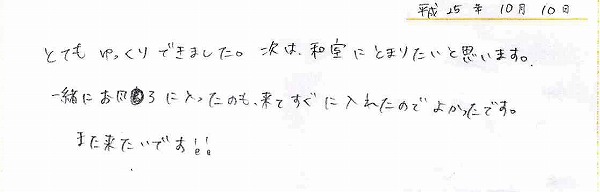 平成25年10月10日
とてもゆっくりできました。次は、和室にとまりたいと思います。
一緒にお風ろに入ったのも、来てすぐに入れたのでよかったです。
また来たいです!!